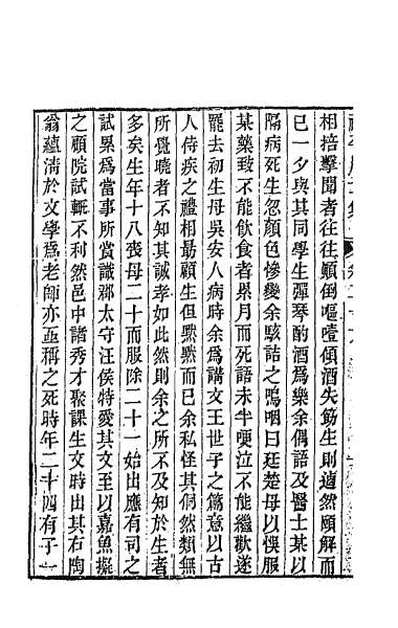 相掊擊聞者往往顚倒嘔噎傾酒失筯生則適然頤解而
已一夕與其同學生彈琴酌酒爲樂余偶語及醫士某以
隔病死生忽顏色慘變余駭詰之嗚咽曰廷楚母以悞服
某藥致不能飮食者累月而死語未半哽泣不能繼歡遂
罷去初生母吳安人病時余爲講文王世子之篇意以古
人侍疾之禮相最顧生但默默而已余私怪其侗然類無
所覺曉者不知其誠孝如此然則余之所不及知於生者
多矣生年十八喪母二十而服除二十一始出應有司之
試累爲當事所賞識郡太守汪侯特愛其文至以嘉魚擬
之顧院試輒不利然邑中諸秀才聚課生文時出其右陶
翁蘊清於文學爲老師亦亟稱之死時年二十四有子一